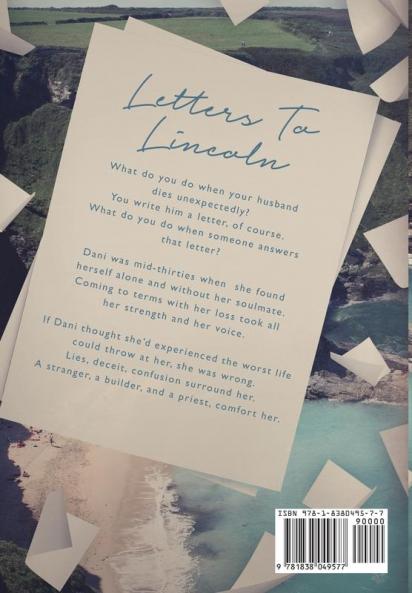 Letters To
Lincoln
What do you do when your husband
dies unexpectedly?
You write him a letter, of course.
What do you do when someone answers
that letter?
Dani was mid-thirties when she found
herself alone and without her soulmate.
Coming to terms with her loss took all
her strength and her voice.
If Dani thought she'd experienced the worst life
could throw at her, she was wrong.
Lies, deceit, confusion surround her.
A stranger, a builder, and a priest, comfort her.
ISBN 978-1-8380495-7-7
90000
9 781838 049577